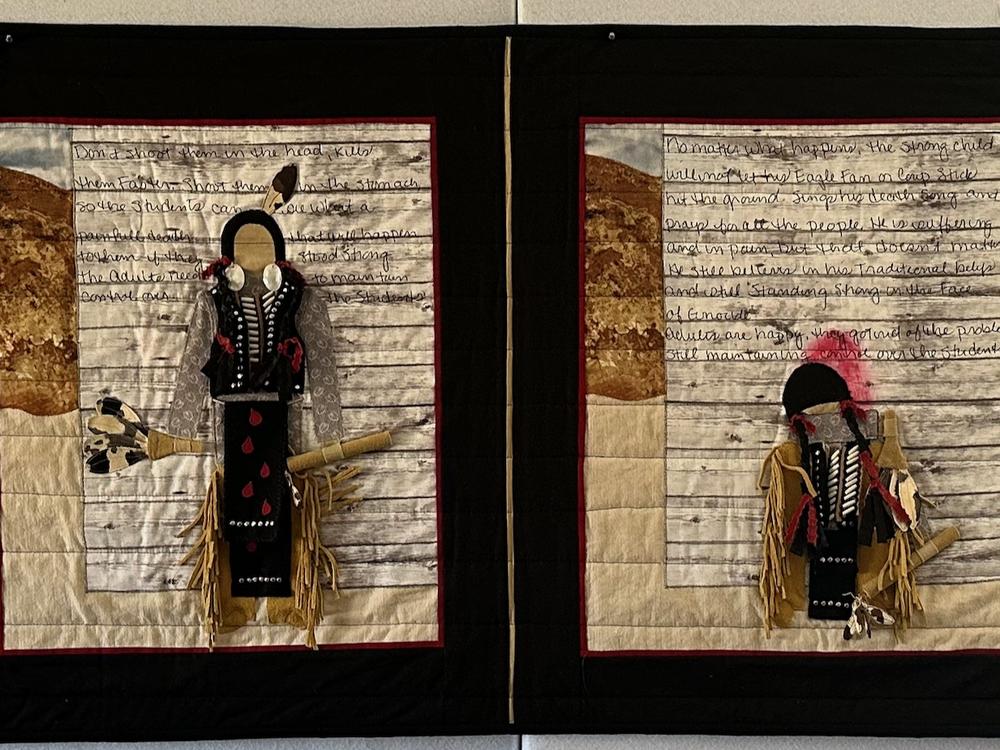 Don't shoot them in the head, kills
them Faster. Shoot them in the stomach
so the students can see what a
painfull death what will happen
to them if they stood strong
The Adults need to maintain
control over the Students
No matter what happens, the strong child
will not let his Eagle Fan or Coup Stick
hit the ground. Sings his death song and
prays for all the people. He is suffering
and in pain, but that doesn't matter
He still believes in his Traditional beliefs
and still Standing Strong in the Face
of Genocide
Adults are happy, they got rid of the problem
still maintaining control over the Students